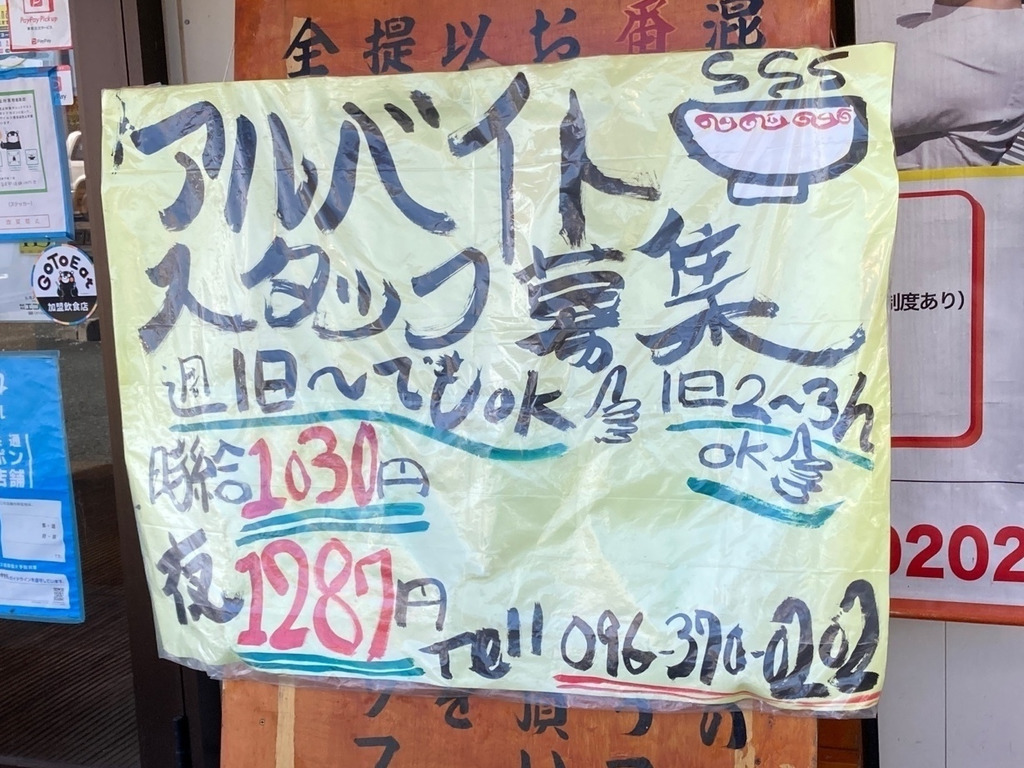 PayPay Pickup
PayPay
全提以お番混
GoToEat
加盟飲食店
アルバイト
スタッフ募集
週1日〜でもok
1日2〜3h
OK
時給1030円
夜1287円
Tell 096-370-0202
制度あり）
0202